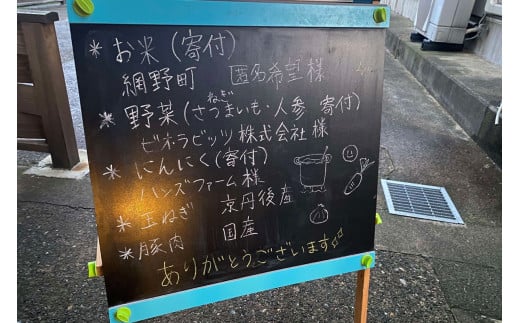 *お米(寄付)
網野町 匿名希望様
*野菜(さつまいも・人参 寄付)
ねぎ
ゼネラビッツ株式会社様
*にんにく(寄付)
ハンズファーム様
*玉ねぎ 京丹後産
*豚肉 国産
ありがとうございます